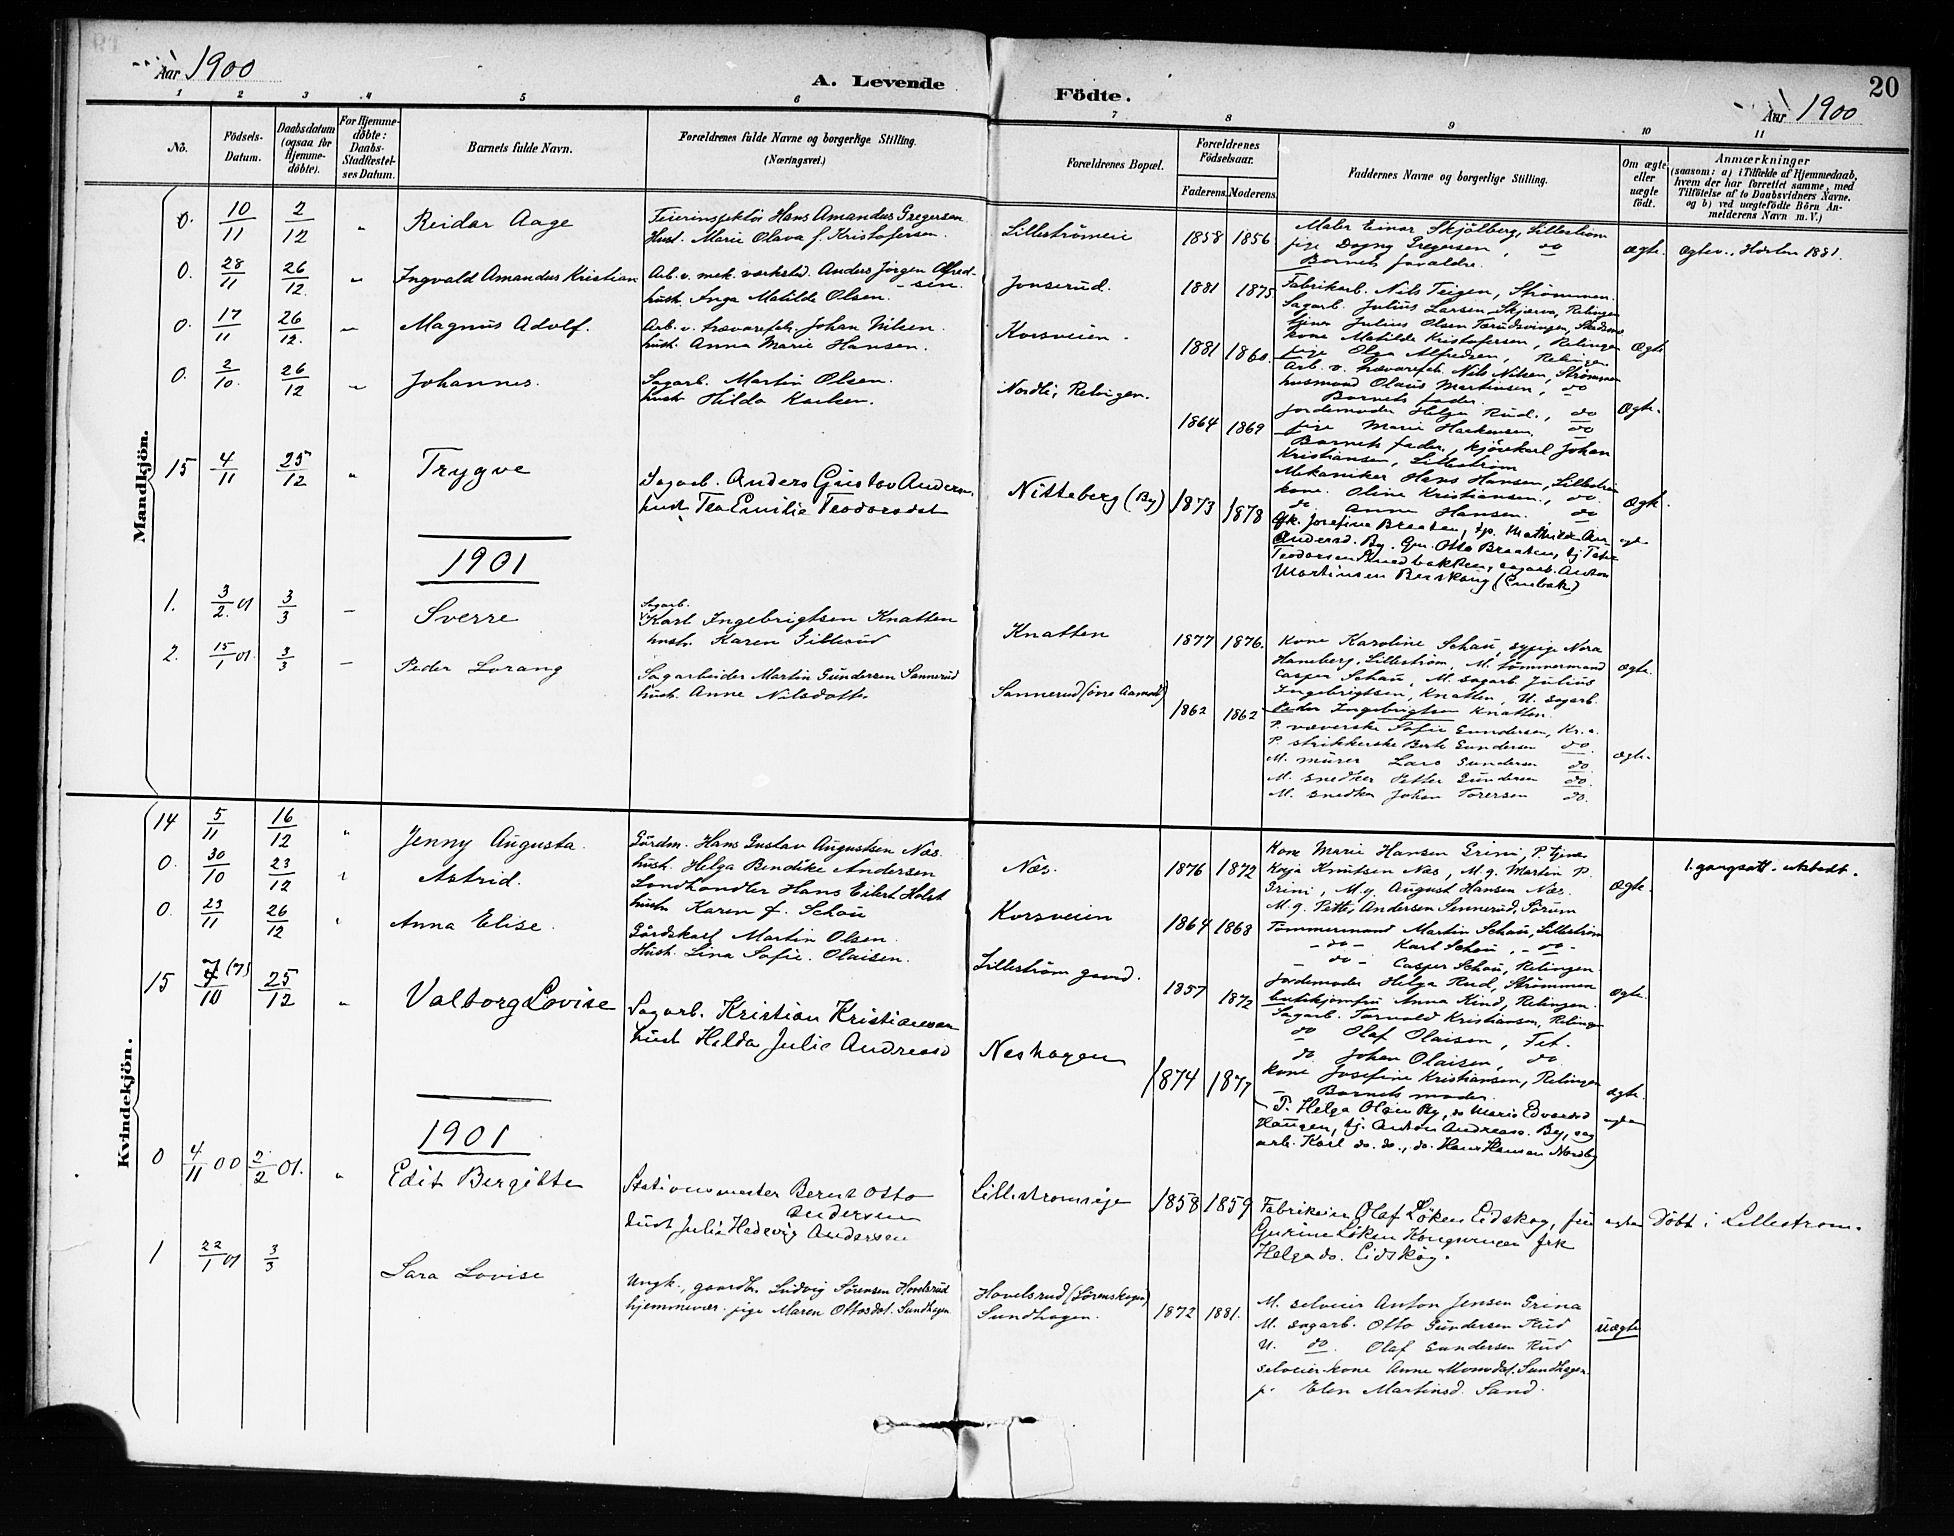 Aar 1900
A. Levende Födte.
20
Aar 1900
1 2 3 4 5 6 7 8 9 10 11
Nô.
Födsels-Datum.
Daabsdatum (ogsaa for Hjemme-döbte).
For Hjemme-döbte: Daabs-Stadfæstel-ses Datum.
Barnets fulde Navn.
Forældrenes fulde Navne og borgerlige Stilling. (Næringsvei.)
Forældrenes Bopæl.
Forældrenes Födselsaar.
Faderens. Moderens.
Faddernes Navne og borgerlige Stilling.
Om ægte eller uægte födt.
Anmærkninger (saasom: a) i Tilfælde af Hjemmedaab, hvem der har forrettet samme, med Tilföielse af to Daabsvidners Navne, og b) ved uægtefödte Börn An-melderens Navn m. V.)
Mandkjön.
0. 10/11 2/12 " Reidar Aage
Feierinspektör Hans Amandus Gregersen
Hust. Marie Olava f. Kristofersen.
Lilleströmeie 1858 1856
Maler Einar Skjölberg, Lilleström
pige Dagny Gregersen, do
Barnets forældre.
Ægte. Ægtev., Horten 1881.
0. 28/11 26/12. " Ingvald Amandus Kristian
Arb. v. mek. værksted. Anders Jörgen Alfred-
-sen.
hust. Inga Matilde Olsen.
Jonserud. 1881 1875
Fabrikarb. Nils Teigen, Strömmen.
Sagarb. Julius Larsen Skjærva, Relingen
tjener Julius Olsen
kone Matilde Kristofersen, Relingen
pige Olga Alfredsen, Relingen.
Ægte
0. 17/11 26/12. " Magnus Adolf.
Arb. v. trævarefab. Johan Nilsen.
hust. Anna Marie Hansen.
Korsveien. 1881 1860.
Arb. v. trævarefab. Nils Nilsen, Strömmen
husmand Olaus Martinsen, do
Barnets fader.
jordemoder Helga Rud., do
pige Marie Haakensen do
Ægte.
0. 2/10. 26/12 " Johannes.
Sagarb. Martin Olsen.
hust. Hilda Karlsen.
Nordli, Relingen. 1864 1869
Barnets fader, kjörekarl Johan
Kristiansen, Lilleström
Mekaniker Hans Hansen, Lilleström
kone. Oline Kristiansen., do
do Anna Hansen. do
Ægte.
15 4/11 25/12 " Trygve
Sagarb. Anders Gustav Anders.
hust Tea Emilie Teodorsdat
Nitteberg (By) 1873 1878
Gfk. Josefine Braaten, tp. Mathilde
Andersd. By. Gm. Otto Braaten, tj
Teodorsen, sagarb. Anton
Martinsen (Enebak)
1901
1. 3/2. 01 3/3 – Sverre
Sagarb.
Karl Ingebrigtsen Knatten
hust. Karen Gillerud
Knatten 1877 1876.
Kone Karoline Schau, sypige Nora
Haneberg, Lilleström, M. tömmermand
Casper Schau, M. sagarb. Julius
Ingebrigtsen, Knatten, U. sagarb.
Peder Ingebrigtsen Knatten.
Ægte.
2. 15/1 01. 3/3 – Peder Lorang
Sagarbeider Martin Gundersen Sannerud
hust. Anne Nilsdatte
Sannerud (övre Aamodt) 1862 1862
P. væverske Sofie Gundersen, Kr.a.
P. strikkerske Berte Gundersen do.
M. murer Lars Gundersen do.
M. snedker Petter Gundersen do.
M. snedker Johan Torersen do.
Ægte.
Kvindekjön.
14 5/11 16/12 " Jenny Augusta.
Gårdm. Hans Gustav Augustsen Næs.
hust. Helga Bendike Andersen
Næs. 1876 1872
Kone Marie Hansen Grini, P. tjener
Kaja Knutsen Næs, M. g. Martin P.
Grini, M. g. August Hansen Næs.
M. g. Petter Andersen Sennerud, Sörum
Ægte.
0. 30/10 23/12 " Astrid.
Landhandler Hans Eilert Holst
hust. Karen f. Schau
Korsveien 1864 1868
Tömmermand Martin Schau, Lilleström
- do - Karl Schau, - do -
- do - Casper Schau, Relingen.
jordemoder Helga Rud, Strömmen
butikjomfru Anna Kind, Relingen.
Ægte.
0. 23/11 26/12 " Anna Elise.
Gårdskarl Martin Olsen.
Hust. Lina Sofie Olaisen.
Lilleström gaard. 1857 1872
Sagarb. Torvald Kristiansen, Relingen
do Olaf Olaisen, Fet.
do Johan Olaisen, do
kone Josefine Kristiansen, Relingen
- Barnets moder.
ægte.
15 7 (7)/10 25/12 " Valborg Lovise
Sagarb. Kristian Kristiansen
hust Hilda Julie Andreasd
Neshagen 1874 1877
P. Helga Olsen By, do Marie Edvardsd
Haugen, tj. Anton Andreass. By, sag
arb. Karl do. do., do. Hans Hansen Nordby
1901
0 4/11 00 2/2 01. " Edit Bergitte
Stationsmester Bernt Otto
Andersen
Hust Julie Hedevig Andersen
Lilleströmeie 1858 1859
Fabrikeier Olaf Löken Eidskog, fru
Gurine Löken Kongsvinger frk
Helga do. Eidskog.
Döbt i Lilleström.
1 22/1 01 3/3 Sara Lovise
Ungk., gaardb. Ludvig Sörensen Hovelsrud
hjemmevær. pige Maren Ottosdat. Sundhagen
Hovelsrud (Lörenskogen)
Sundhagen. 1872 1881.
M. selveier Anton Jensen Grina
M. sagarb. Otto Gundersen Rud
U. do. Olaf Gundersen Rud
selveierkone Anne Monsdat. Sundhagen
p. Elen Martinsd. Sand.
Uægte